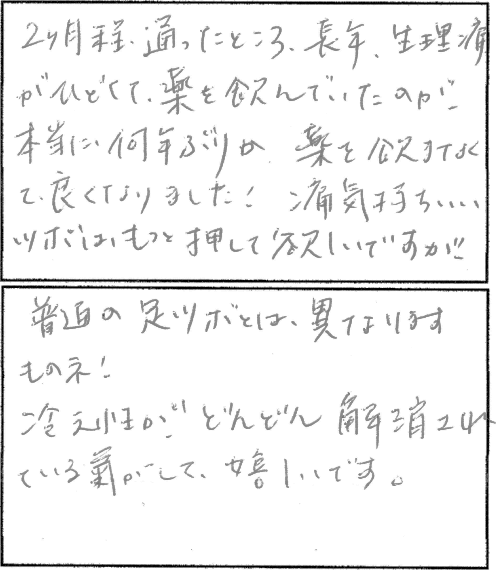 2ヶ月程、通ったところ、長年、生理痛
がひどくて、薬を飲んでいたのが
本当に何年ぶりか 薬を飲まなく
て、良くなりました！ 痛気持ちいい
ツボは、もっと押して欲しいですが
普通の足ツボとは、異なります
ものネ！
冷え性が どんどん 解消され
ている氣がして、嬉しいです。